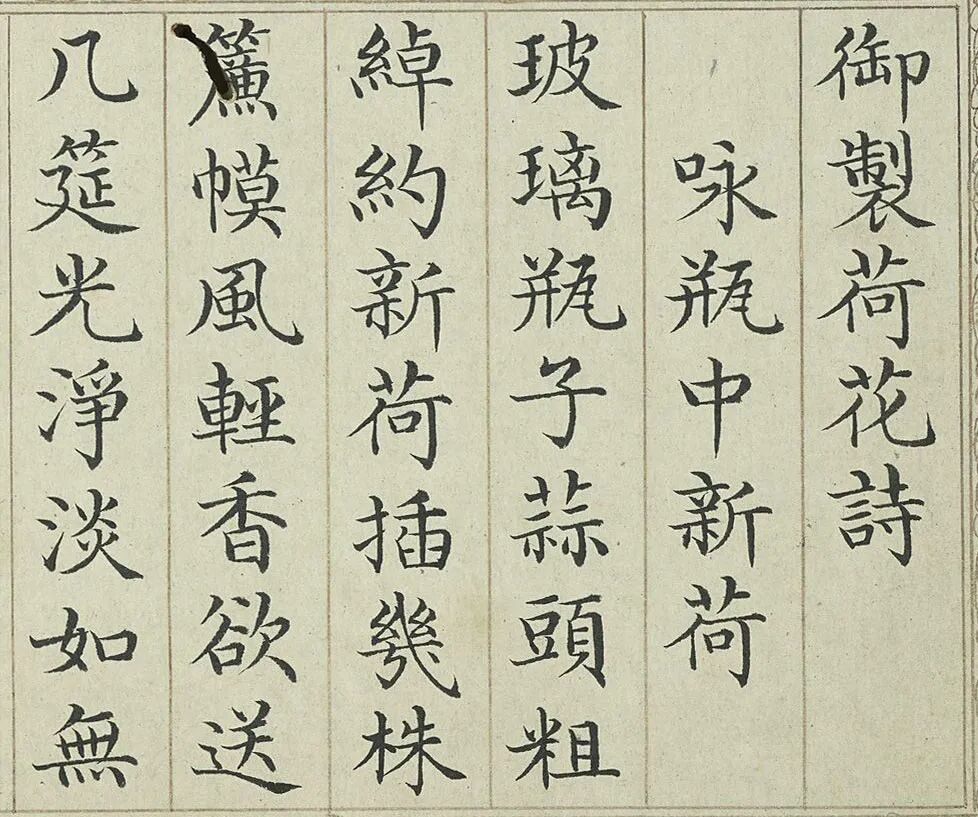 御製荷花詩
咏瓶中新荷
玻璃瓶子蒜頭粗
綽約新荷插幾株
簾幙風輕香欲送
几筵光淨淡如無